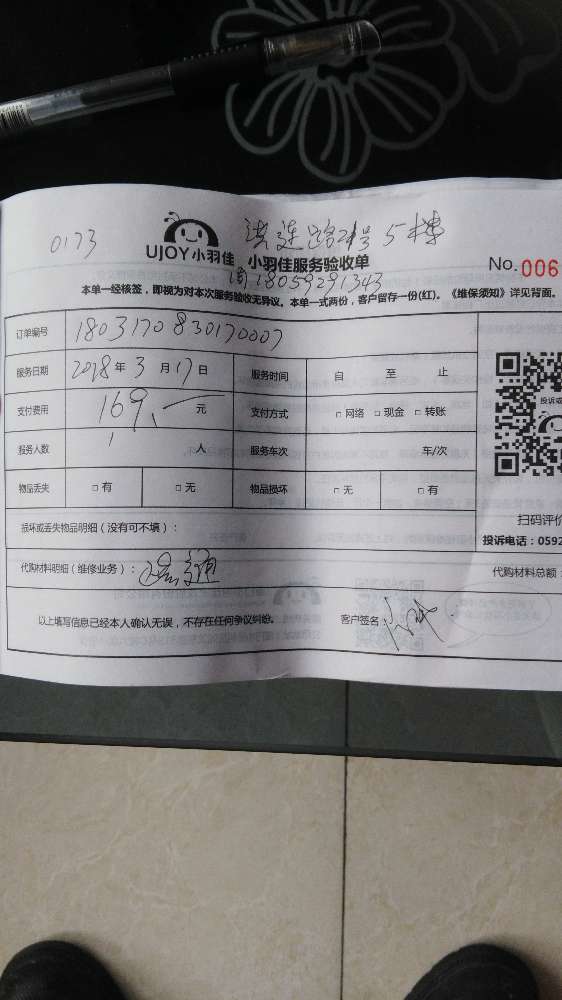 0173
路2号5栋
UJOY小羽佳 小羽佳服务验收单
No.006
18059291343
本单一经核签,即视为对本次服务验收无异议。本单一式两份,客户留存一份(红)。《维保须知》详见背面。
订单编号 1803170830170007
服务日期 2018年3月17日 服务时间 自 至 止
支付费用 169、元 支付方式 □网络 □现金 □转账
服务人数 1 人 服务车次 车/次
物品丢失 □有 □无 物品损坏 □无 □有
投诉或
扫码评价
损坏或丢失物品明细(没有可不填):
投诉电话:0592
代购材料明细(维修业务): 代购材料总额:
以上填写信息已经本人确认无误,不存在任何争议纠纷。 客户签名: